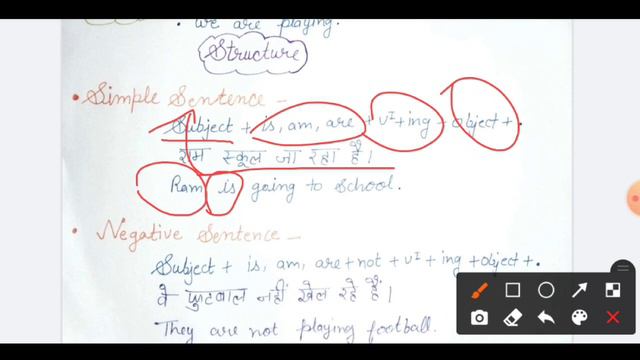 we are playing.
Structure
• Simple Sentence –
Subject + is, am, are + v¹ + ing + object + .
राम स्कूल जा रहा है।
Ram is going to School.
• Negative Sentence –
Subject + is, am, are + not + v¹ + ing + object + .
वे फुटबाल नहीं खेल रहे हैं।
They are not playing football.